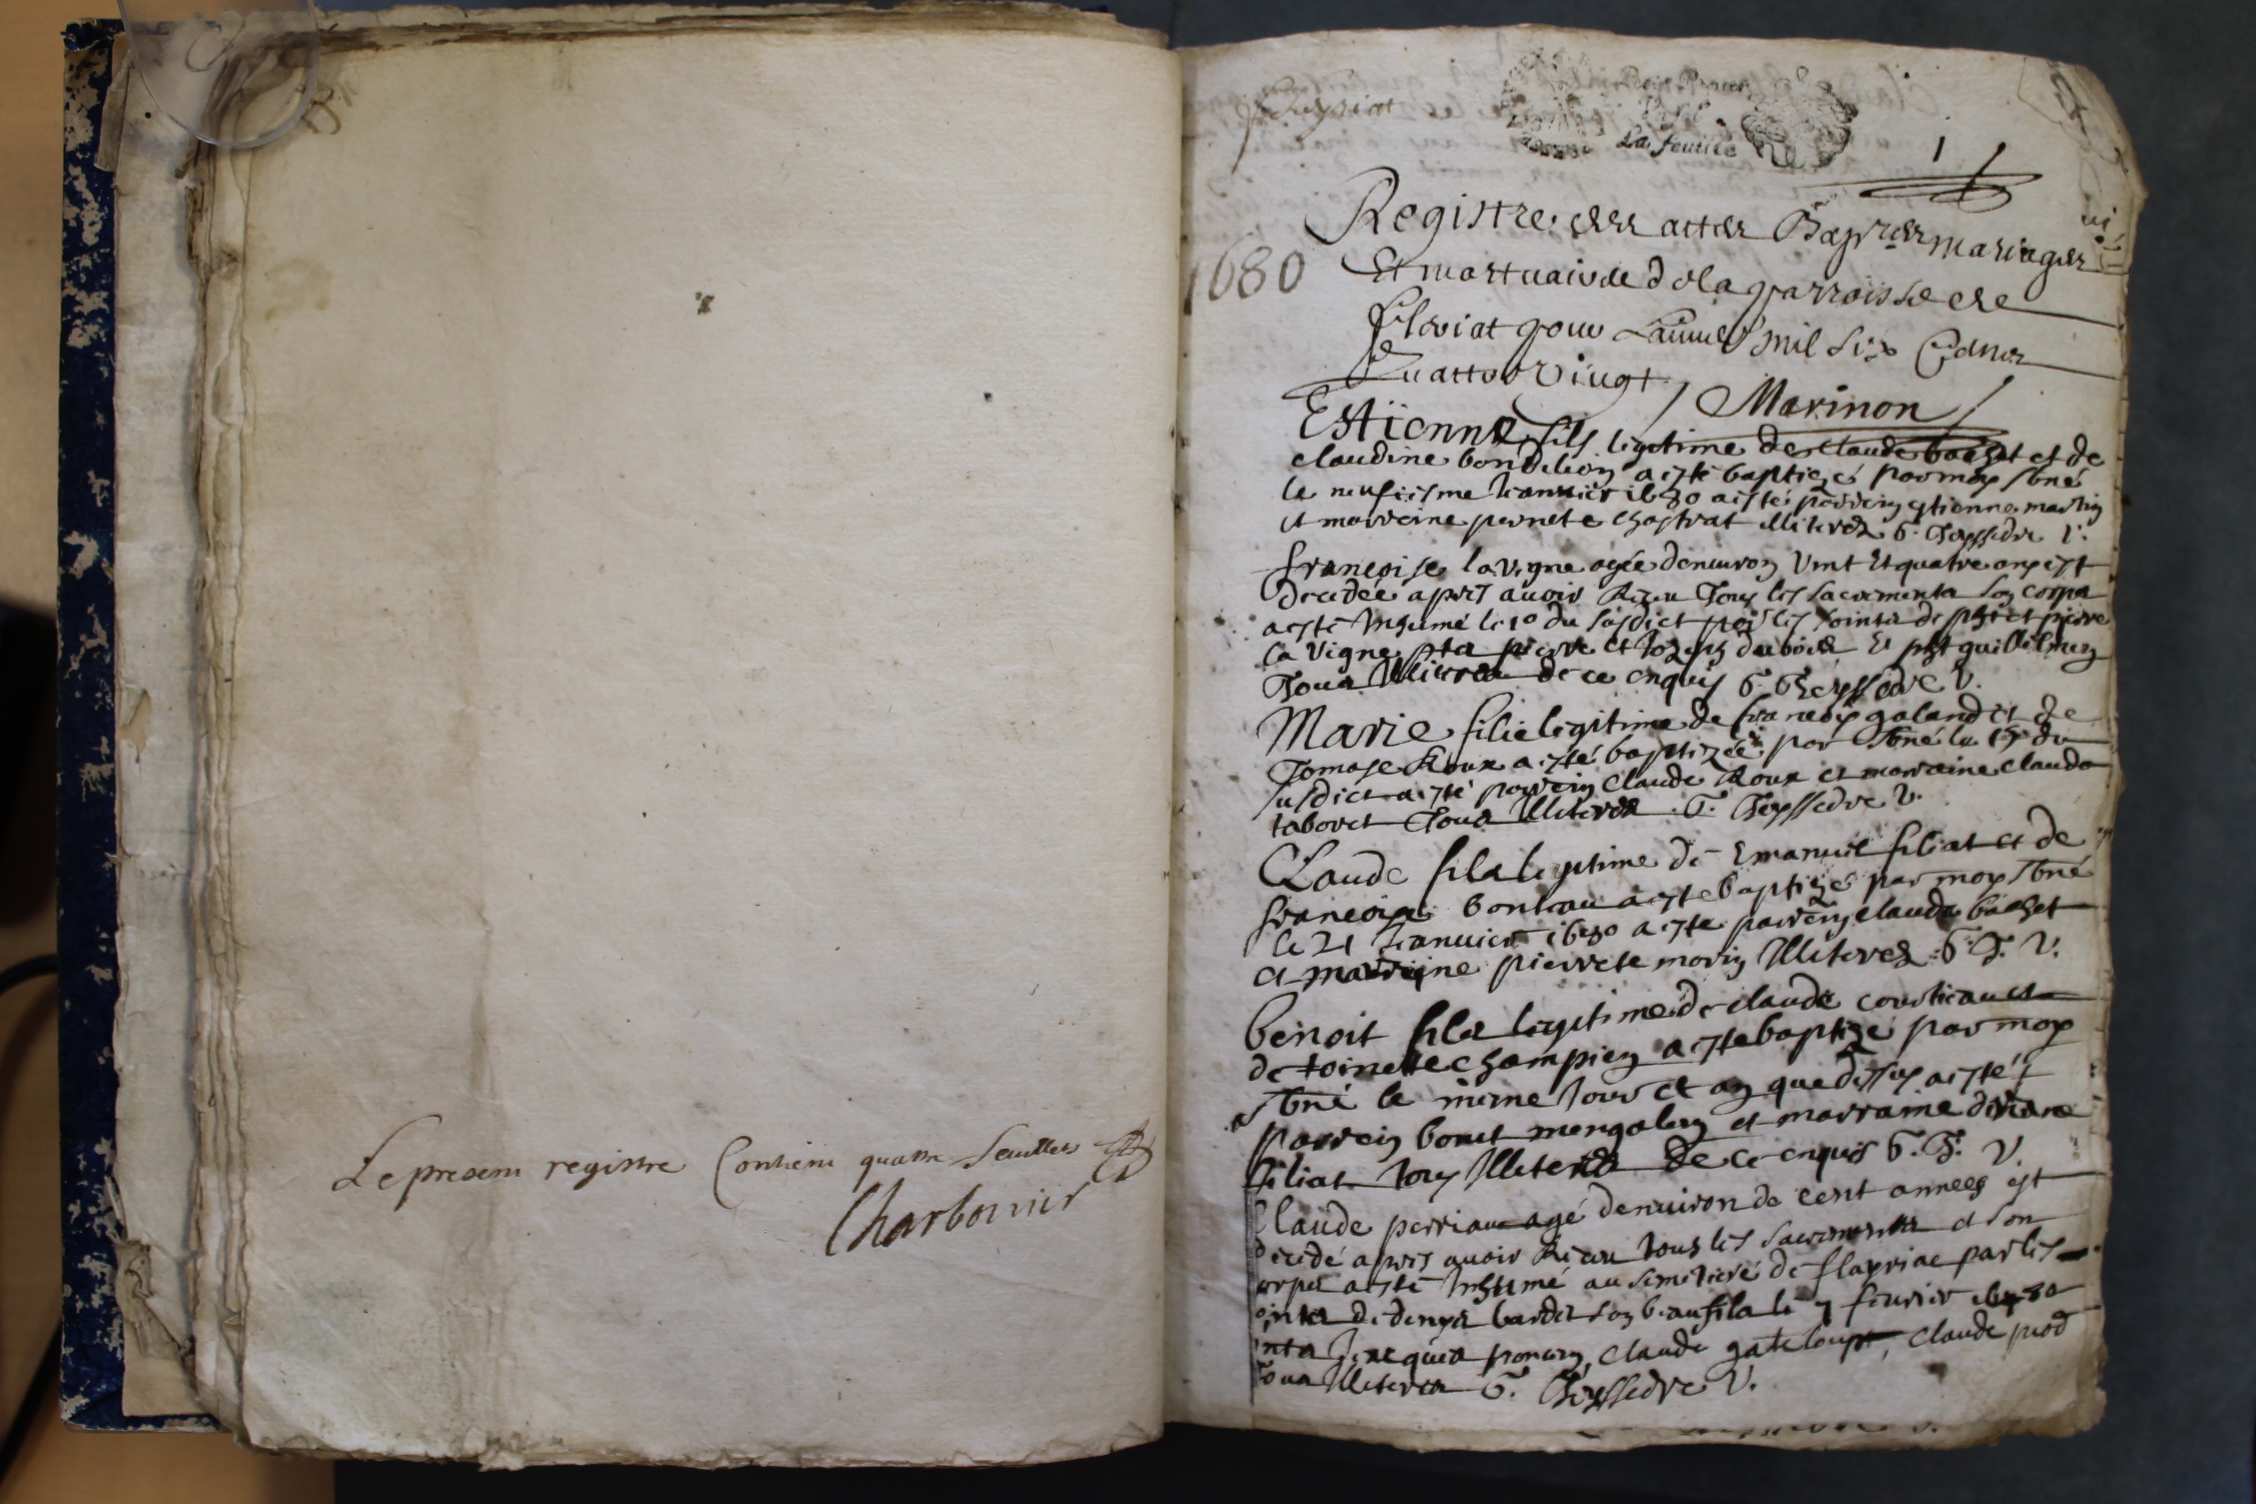 Le present registre Contient quattre feuillets
Charbonier
La feuille
1
1680
Registre des actes Bapt.es mariages
Et mortuaire de la parroisse de
fleiriat pour L'annee mil six Cens
Quattre vingt
Marinon
Estienne fils legitime de Claude bachet et de
claudine bondilion a esté baptizé par moy sbné
le neufiesme Ianvier 1680 a esté parrein estienne martin
et marreine pernete chastrat illiterez G. Teyssedre V.
françoise lavigne agée denviron vint et quatre ans est
decedée apres avoir Reçeu Tous les sacrements son corps
a esté Inhumé le 10 du susdict par les sointz de et pierre
la vigne pierre et duboid Et guillelmin
Tous Illiterez de ce enquis G. Theyssedre V.
Marie filie legitime de françoys galand et de
Tomase Roux a esté baptizée par sbné le 15 du
susdict a esté parrein Claude Roux et marreine Claude
taboret Tous Illiterez G. Teyssedre V.
Claude fils legitime de Emanuel filiat et de
françoise bonteau a este baptizé par moy sbné
le 21 Ianvier 1680 a este parrein claude bachet
et marreine pierrete morin Illiterez G. T. V.
benoit fils legitime de claude courtieau et
de toinette champion a este baptizé par moy
sbné le mème Iour et an que dessus a esté
parrein bonet mengalin et marraine diane
filiat tous Illiterez de ce enquis G. T. V.
Claude perriau agé denviron de cent annees est
decedé apres avoir Reçeu tous les sacrements et son
corps a esté Inhumé au semetiere de flayriac par les
ointz de denys bardet son beaufils le 7 fevrier 1680
Iacques poncin, Claude gateloup, Claude
Tous Illiterez G. Teyssedre V.